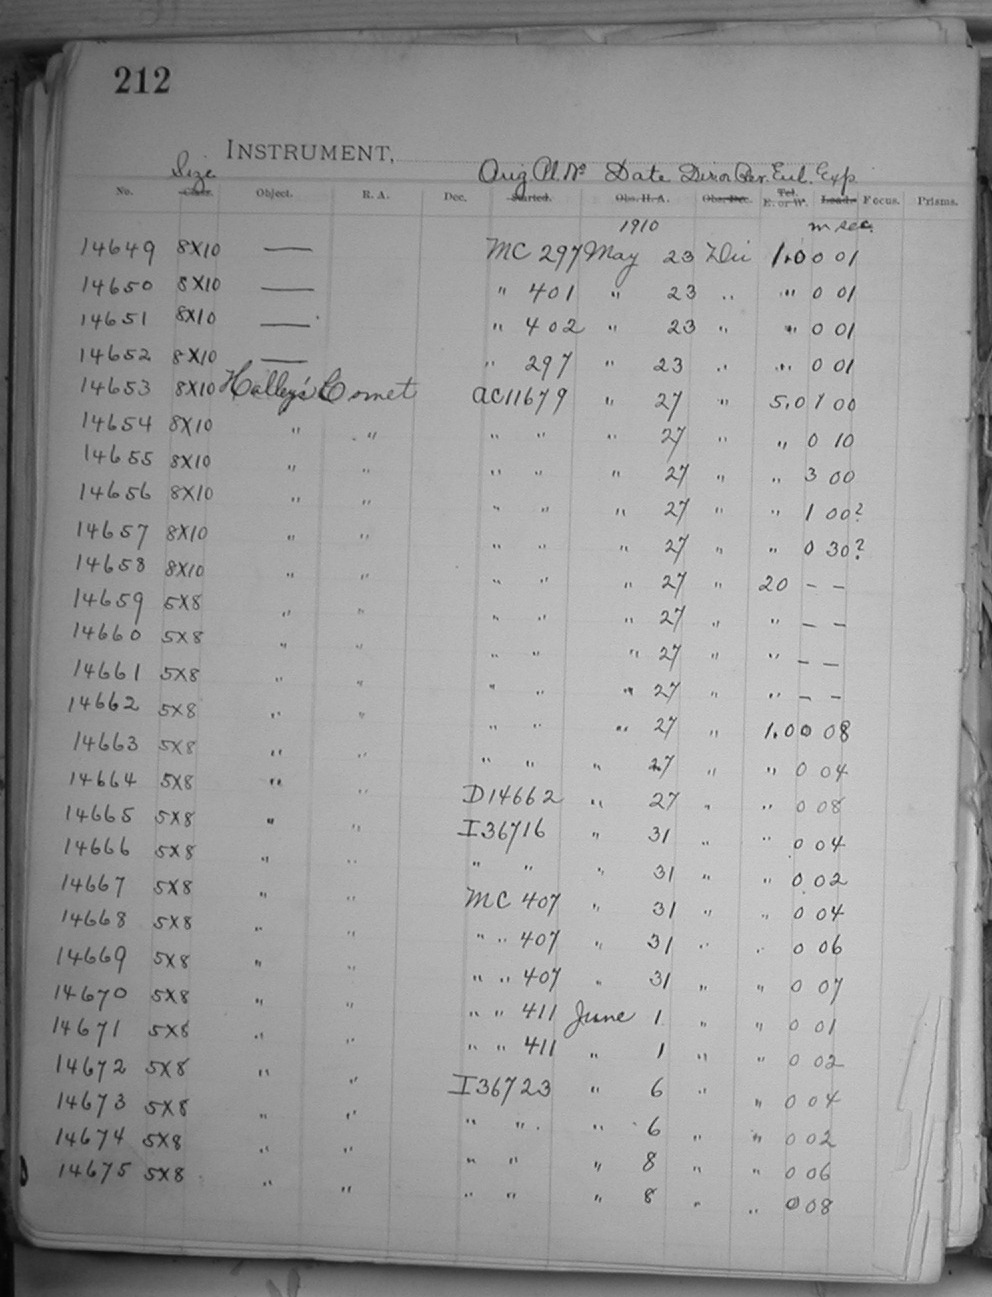 212
INSTRUMENT,
Size Orig. Pl. No Date Dir. or Rev. Enl. Exp.
No. Class. Object. R. A. Dec. Started. Obs. H. A. Obs. Dec. Tel. E. or W. Leads. Focus. Prisms.
1910 m sec.
14649 8X10 — MC 297 May 23 Dir 1.0 0 01
14650 8X10 — " 401 " 23 " " 0 01
14651 8X10 — " 402 " 23 " " 0 01
14652 8X10 — " 297 " 23 " " 0 01
14653 8X10 Halley's Comet AC11679 " 27 " 5.0 1 00
14654 8X10 " " " " " 27 " " 0 10
14655 8X10 " " " " " 27 " " 3 00
14656 8X10 " " " " " 27 " " 1 00?
14657 8X10 " " " " " 27 " " 0 30?
14658 8X10 " " " " " 27 " 20 – –
14659 5X8 " " " " " 27 " " – –
14660 5X8 " " " " " 27 " " – –
14661 5X8 " " " " " 27 " " – –
14662 5X8 " " " " " 27 " 1.0 0 08
14663 5X8 " " " " " 27 " " 0 04
14664 5X8 " " D14662 " 27 " " 0 08
14665 5X8 " " I36716 " 31 " " 0 04
14666 5X8 " " " " " 31 " " 0 02
14667 5X8 " " MC 407 " 31 " " 0 04
14668 5X8 " " " " 407 " 31 " " 0 06
14669 5X8 " " " " 407 " 31 " " 0 07
14670 5X8 " " " " 411 June 1 " " 0 01
14671 5X8 " " " " 411 " 1 " " 0 02
14672 5X8 " " I36723 " 6 " " 0 04
14673 5X8 " " " " " 6 " " 0 02
14674 5X8 " " " " " 8 " " 0 06
14675 5X8 " " " " " 8 " " 0 08